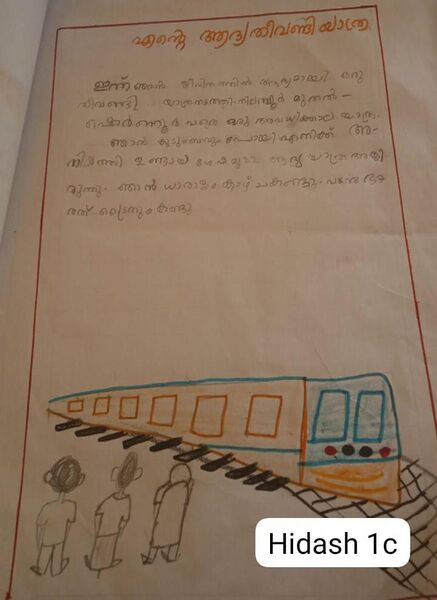 എന്റെ ആദ്യ തീവണ്ടി യാത്ര
ഇന്ന് ഞാൻ ജീവിതത്തിൽ ആദ്യമായി ഒരു
തീവണ്ടി യാത്ര നടത്തി. നിലമ്പൂർ മുതൽ -
ഷൊർണ്ണൂർ വരെ ഒരു അവധിക്കാല യാത്ര.
ഞാൻ കുടുംബവും പോയി എനിക്ക് അ-
ഉണ്ടായ ആദ്യ യാത്ര ആയി
രുന്നു. ഞാൻ ധാരാളം കാഴ്ചകണ്ടു.
ട്രൈനും കണ്ടു
Hidash 1c